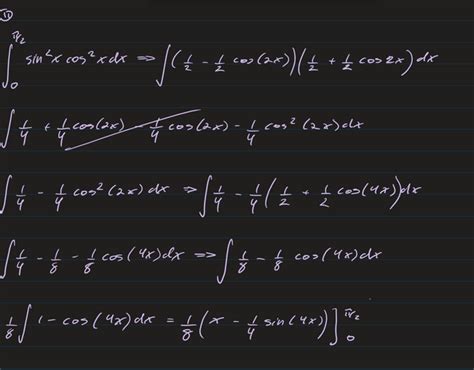 11
∫₀^(π/2) sin²x cos²x dx ⇒ ∫(1/2 - 1/2 cos(2x))(1/2 + 1/2 cos 2x) dx
∫ 1/4 + 1/4 cos(2x) - 1/4 cos(2x) - 1/4 cos²(2x) dx
∫ 1/4 - 1/4 cos²(2x) dx ⇒ ∫ 1/4 - 1/4 (1/2 + 1/2 cos(4x)) dx
∫ 1/4 - 1/8 - 1/8 cos(4x) dx ⇒ ∫ 1/8 - 1/8 cos(4x) dx
1/8 ∫ 1 - cos(4x) dx = 1/8 (x - 1/4 sin(4x)) ]₀^(π/2)